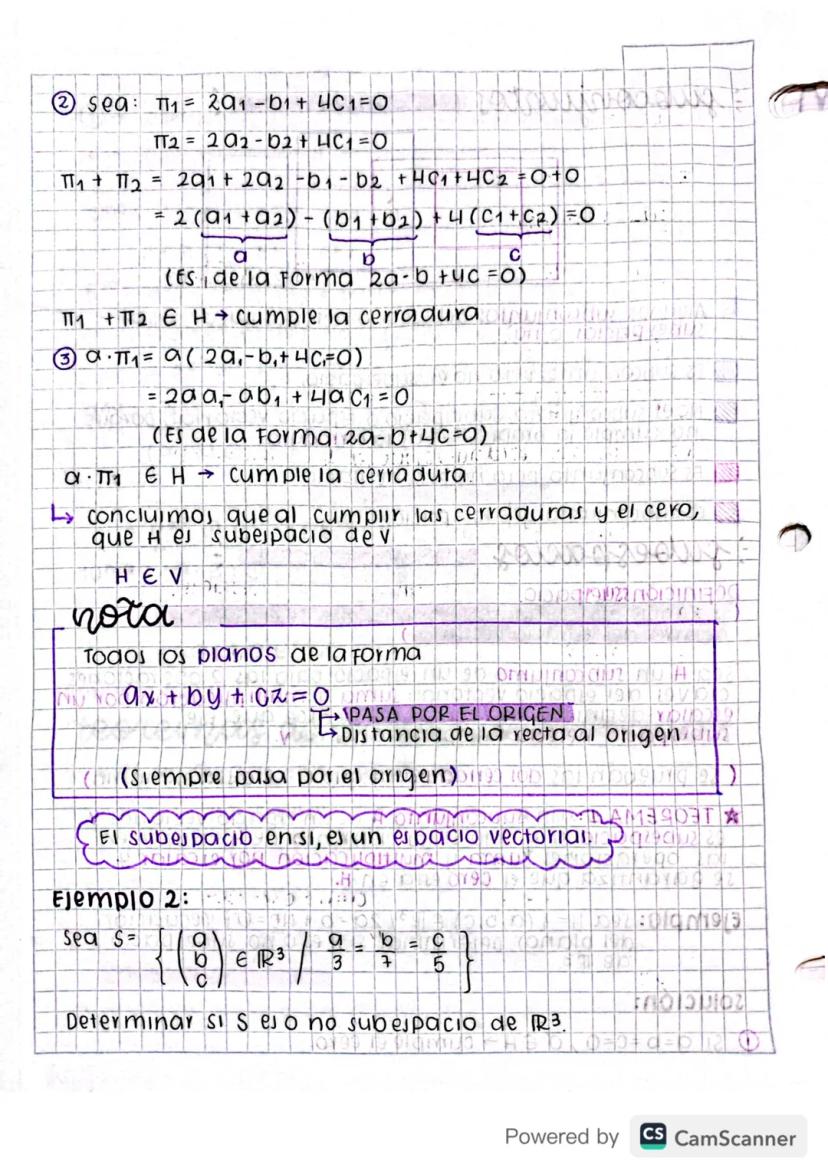 ② Sea: π1 = 2a1 - b1 + 4c1 = 0
π2 = 2a2 - b2 + 4c1 = 0
π1 + π2 = 2a1 + 2a2 - b1 - b2 + 4c1 + 4c2 = 0 + 0
= 2 (a1 + a2) - (b1 + b2) + 4 (c1 + c2) = 0
a b c
(Es de la forma 2a - b + 4c = 0)
π1 + π2 ∈ H → cumple la cerradura
③ a · π1 = a ( 2a1 - b1 + 4c1 = 0)
= 2aa1 - ab1 + 4ac1 = 0
(Es de la forma 2a - b + 4c = 0)
α · π1 ∈ H → cumple la cerradura.
↳ concluimos que al cumplir las cerraduras y el cero,
que H es subespacio de V
H ∈ V
nota
Todos los planos de la forma
ax + by + cz = 0
→ PASA POR EL ORIGEN
↳ Distancia de la recta al origen
(Siempre pasa por el origen)
El subespacio en si, es un espacio vectorial.
Ejemplo 2:
Sea S = { (a b c) ∈ ℝ³ / a/3 = b/7 = c/5 }
Determinar si S es o no subespacio de ℝ³.
Powered by CS CamScanner